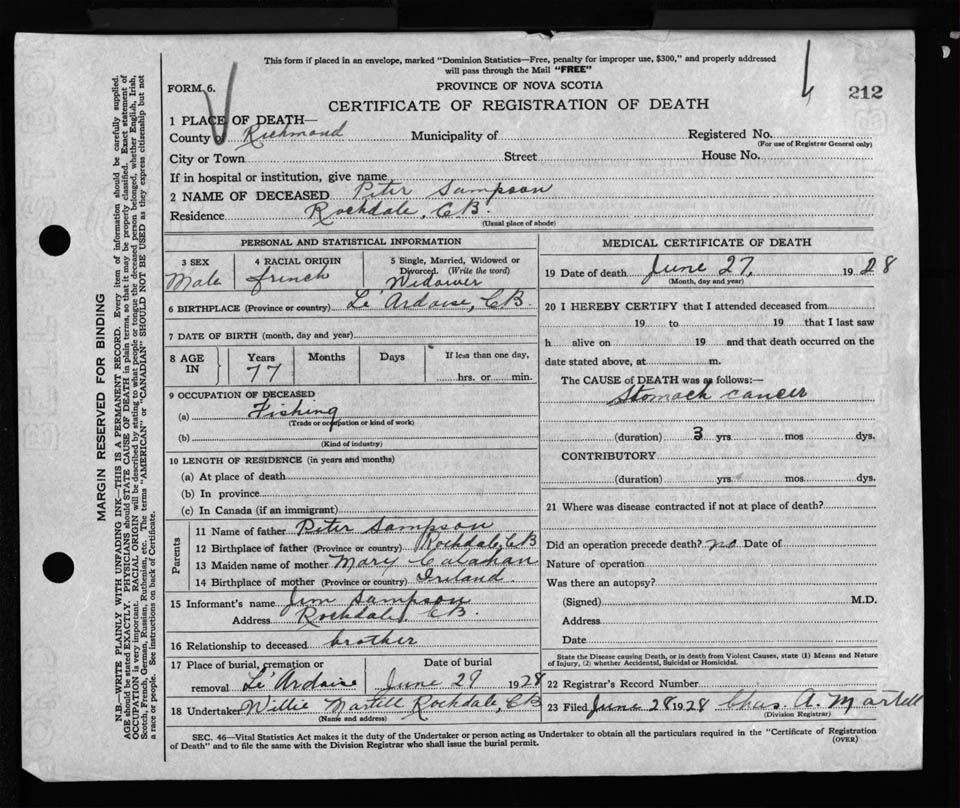 This form if placed in an envelope, marked "Dominion Statistics—Free, penalty for improper use, $300," and properly addressed
will pass through the Mail "FREE"
FORM 6.
PROVINCE OF NOVA SCOTIA
212
CERTIFICATE OF REGISTRATION OF DEATH
1 PLACE OF DEATH—
County Richmond Municipality of Registered No.
(For use of Registrar General only)
City or Town Street House No.
If in hospital or institution, give name
2 NAME OF DECEASED Peter Sampson
Residence Rockdale, CB.
(Usual place of abode)
PERSONAL AND STATISTICAL INFORMATION
3 SEX
Male
4 RACIAL ORIGIN
french
5 Single, Married, Widowed or
Divorced. (Write the word)
Widower
6 BIRTHPLACE (Province or country) Le Ardoise, CB.
7 DATE OF BIRTH (month, day and year)
8 AGE IN
Years Months Days
77
If less than one day,
hrs. or min.
9 OCCUPATION OF DECEASED
(a) Fishing
(Trade or occupation or kind of work)
(b)
(Kind of industry)
10 LENGTH OF RESIDENCE (in years and months)
(a) At place of death
(b) In province
(c) In Canada (if an immigrant)
Parents
11 Name of father Peter Sampson
12 Birthplace of father (Province or country) Rockdale, CB
13 Maiden name of mother Mary Calahan
14 Birthplace of mother (Province or country) Ireland.
15 Informant's name Jim Sampson
Address Rockdale, CB.
16 Relationship to deceased brother
17 Place of burial, cremation or
removal Le'Ardoise
Date of burial
June 29 1928
18 Undertaker Willie Martell Rockdale, CB
(Name and address)
MEDICAL CERTIFICATE OF DEATH
19 Date of death June 27, 1928
(Month, day and year)
20 I HEREBY CERTIFY that I attended deceased from
19 to 19 that I last saw
h alive on 19 and that death occurred on the
date stated above, at m.
The CAUSE of DEATH was as follows:—
Stomach cancer
(duration) 3 yrs mos dys.
CONTRIBUTORY
(duration) yrs mos dys.
21 Where was disease contracted if not at place of death?
Did an operation precede death? no Date of
Nature of operation
Was there an autopsy?
(Signed) M.D.
Address
Date
State the Disease causing Death, or in death from Violent Causes, state (1) Means and Nature
of Injury, (2) whether Accidental, Suicidal or Homicidal.
22 Registrar's Record Number
23 Filed June 28 1928 Chas. A. Martell
(Division Registrar)
SEC. 46—Vital Statistics Act makes it the duty of the Undertaker or person acting as Undertaker to obtain all the particulars required in the "Certificate of Registration
of Death" and to file the same with the Division Registrar who shall issue the burial permit.
(OVER)
MARGIN RESERVED FOR BINDING
N.B.—WRITE PLAINLY WITH UNFADING INK—THIS IS A PERMANENT RECORD. Every item of information should be carefully supplied.
AGE should be stated EXACTLY. PHYSICIANS should STATE CAUSE OF DEATH in plain terms, so that it may be properly classified. Exact statement of
OCCUPATION is very important. RACIAL ORIGIN will be described by stating to what people or tongue the deceased person belonged, whether English, Irish,
Scotch, French, German, Russian, Ruthenian, etc. The terms "AMERICAN" or "CANADIAN" SHOULD NOT BE USED as they express citizenship but not
a race or people. See instructions on back of Certificate.